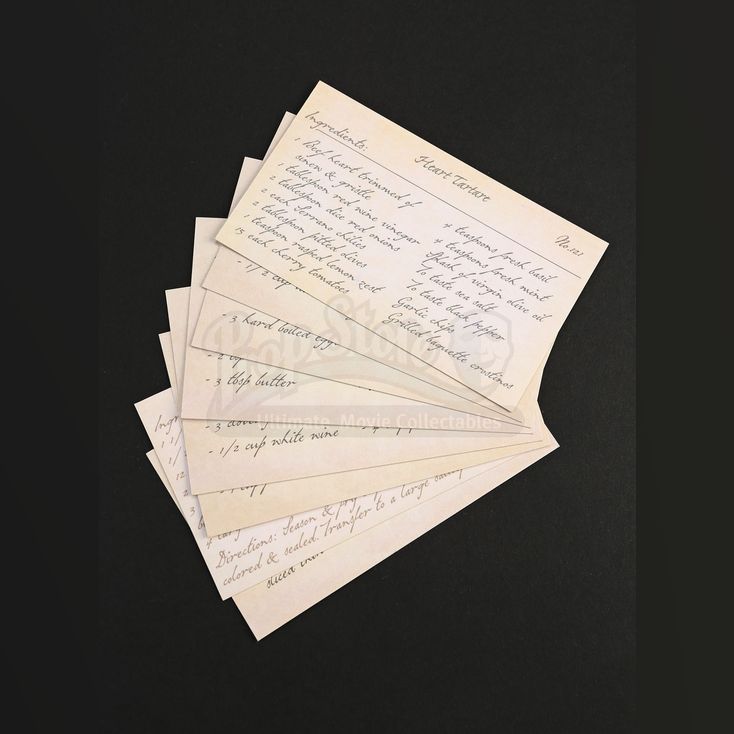 Heart Tartare
No.121
Ingredients:
1 Beef heart trimmed of
sinew & gristle
1 tablespoon red wine vinegar
2 tablespoon dice red onions
2 each Serrano chilies
2 tablespoon pitted olives
1 teaspoon rasped lemon zest
13 each cherry tomatoes
4 teaspoons fresh basil
4 teaspoons fresh mint
Splash of virgin olive oil
To taste sea salt
To taste black pepper
Garlic chips
Grilled baguette crostinos
- 1/2 cup
- 3 hard boiled egg
- 2
- 3 tbsp butter
- 3
- 1/2 cup white wine
Ingr
Directions: Season & fry
colored & sealed. Transfer to a large
sliced
PropStore
Ultimate Movie Collectables